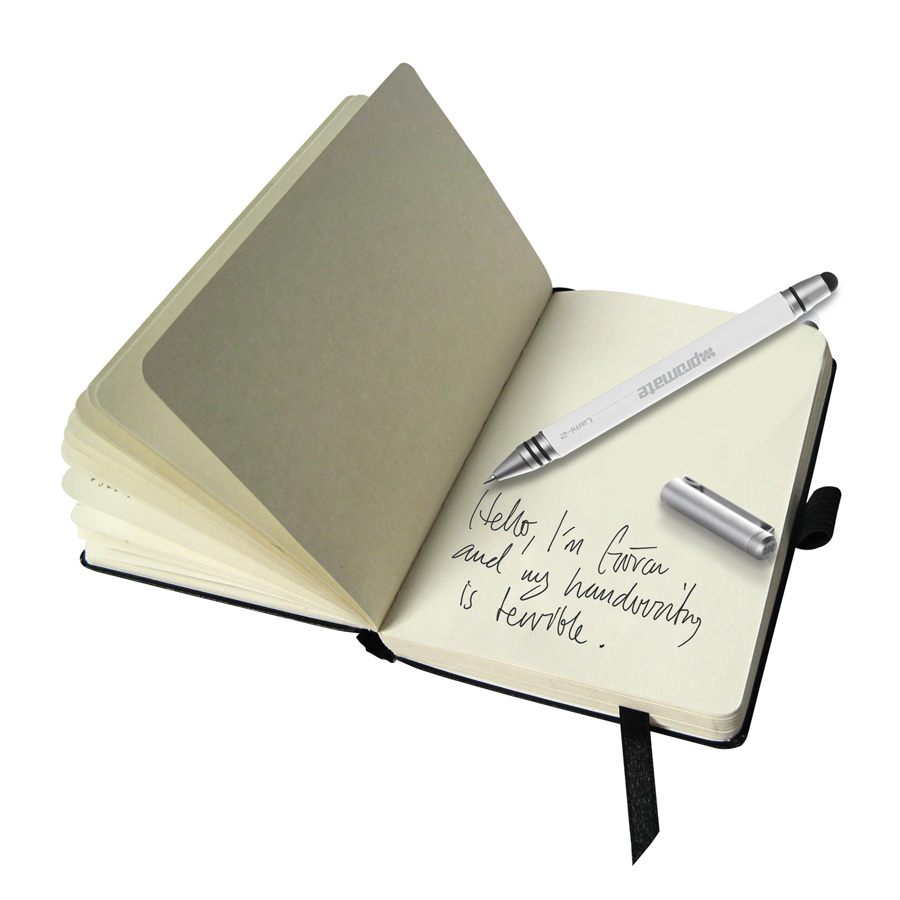 promate
Lami-2
Hello, I'm Göran
and my handwriting
is terrible.